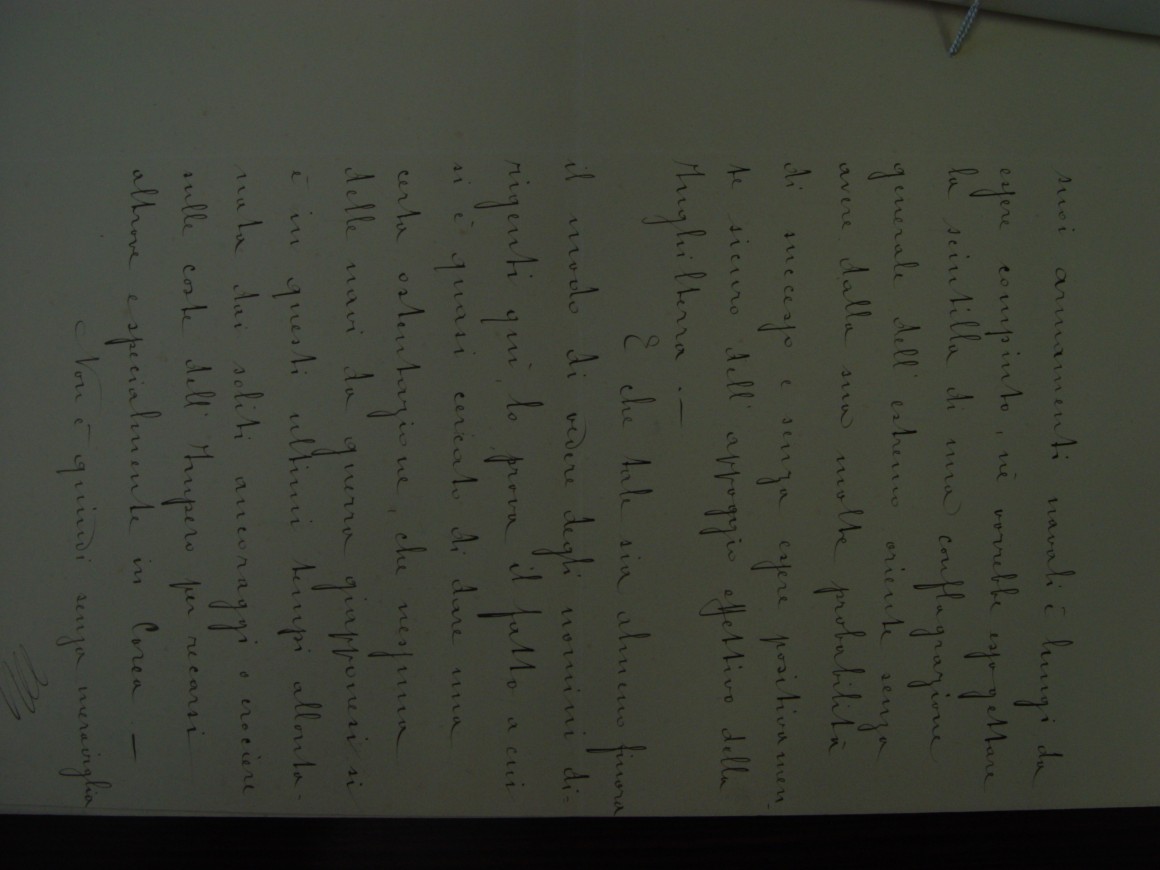 suoi armamenti navali è lungi da
essere compiuto, nè vorrebbe
la scintilla di una conflagrazione
generale dell'estremo oriente senza
avere dalla sua molta probabilità
di successo e senza essere positivamen-
te sicuro dell'appoggio effettivo della
Inghilterra. —
E che tale sia almeno finora
il modo di vedere degli uomini di-
rigenti qui, lo prova il fatto a cui
si è quasi cercato di dare una
certa ostentazione, che nessuna
delle navi da guerra giapponesi si
è in questi ultimi tempi allonta-
nata dai soliti ancoraggi o crociere
sulle coste dell'Impero per recarsi
altrove e specialmente in Corea. —
Non è quindi senza meraviglia